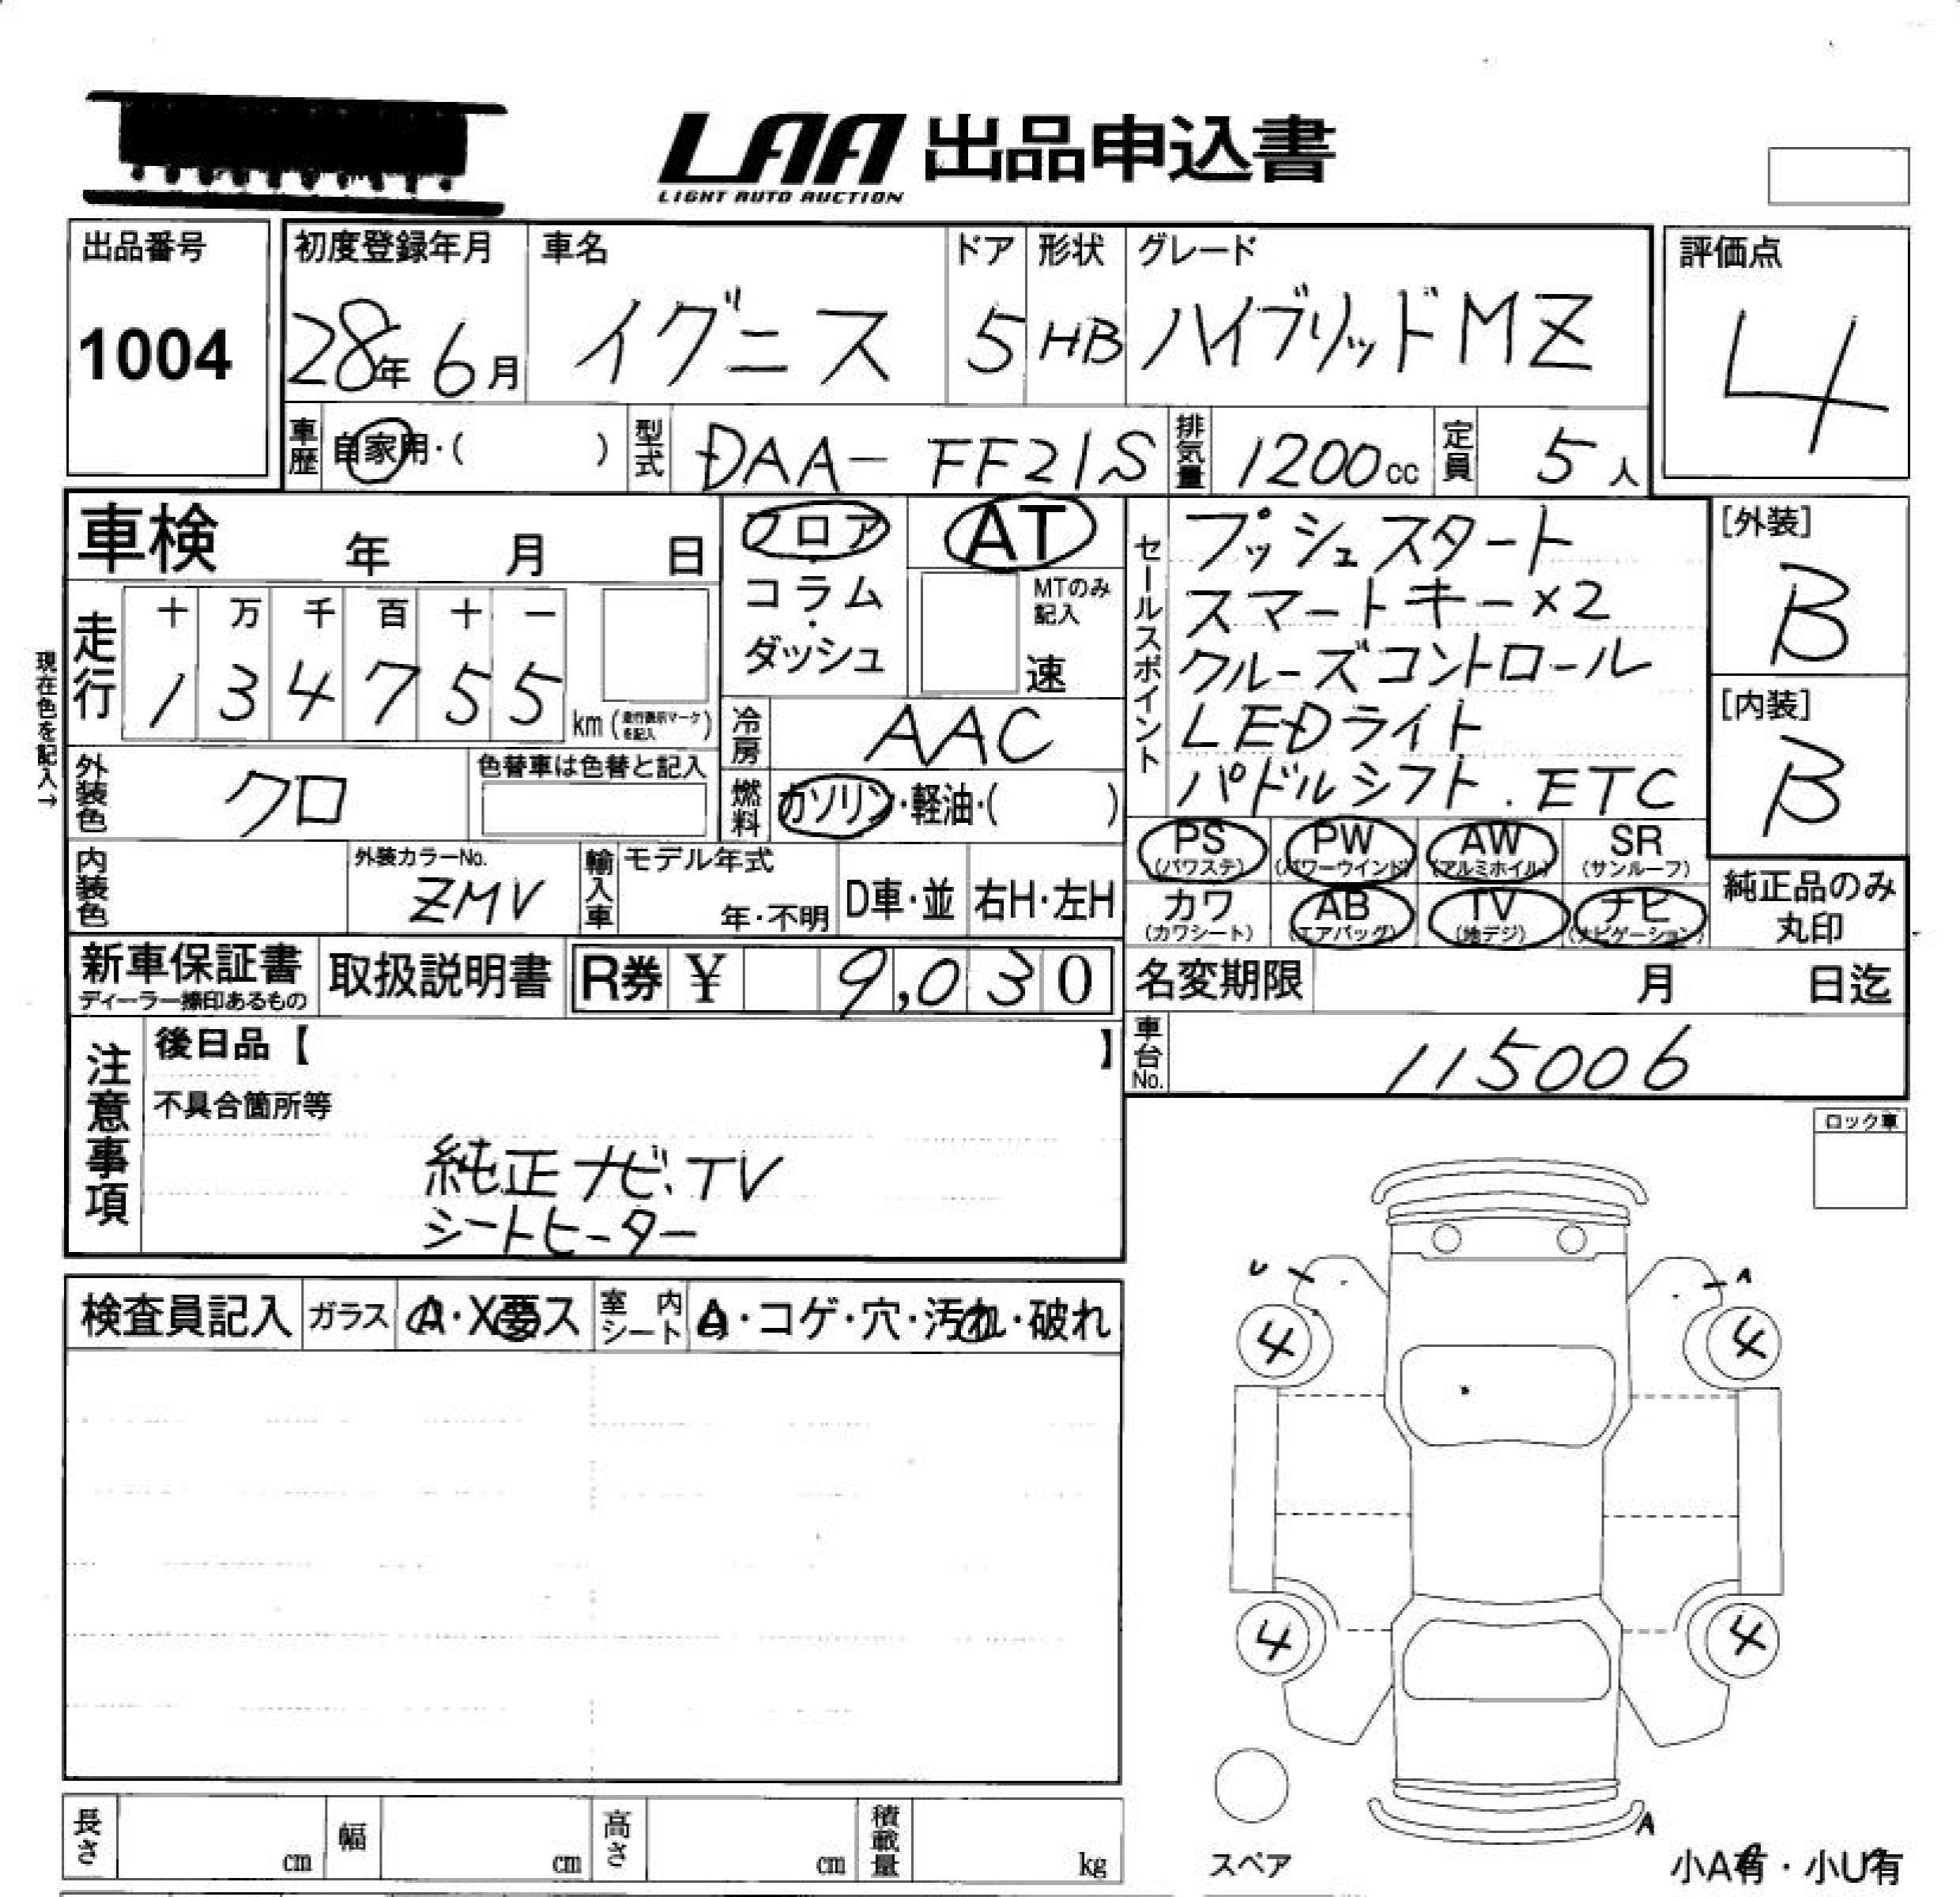 LAA 出品申込書
LIGHT AUTO AUCTION
出品番号
1004
初度登録年月
28年 6月
車名
イグニス
ドア
5
形状
HB
グレード
ハイブリッドMZ
評価点
4
車歴 自家用・( )
型式 DAA- FF21S
排気量 1200cc
定員 5人
車検 年 月 日
フロア
・
コラム
・
ダッシュ
AT
MTのみ
記入
速
現在色を記入→
走行
十 万 千 百 十 一
1 3 4 7 5 5 km (走行表示マークを記入)
冷房 AAC
燃料 ガソリン・軽油・( )
外装色 クロ
色替車は色替と記入
内装色
外装カラーNo.
ZMV
輸入車 モデル年式
年・不明
D車・並 右H・左H
セールスポイント
プッシュスタート
スマートキー×2
クルーズコントロール
LEDライト
パドルシフト.ETC
[外装]
B
[内装]
B
PS PW AW SR
(パワステ) (パワーウインド) (アルミホイル) (サンルーフ)
カワ AB TV ナビ
(カワシート) (エアバッグ) (地デジ) (ナビゲーション)
純正品のみ
丸印
新車保証書
ディーラー捺印あるもの
取扱説明書
R券 ¥ 9,030
名変期限 月 日迄
車台No. 115006
注意事項
後日品【 】
不具合箇所等
純正ナビ、TV
シートヒーター
ロック車
検査員記入 ガラス A・X要ス 室内シート ・コゲ・穴・汚れ・破れ
U A
4 4
4 4
A
スペア
小A有・小U有
長さ cm 幅 cm 高さ cm 積載量 kg